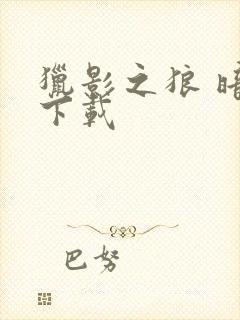 獵影之狼
下載
巴努